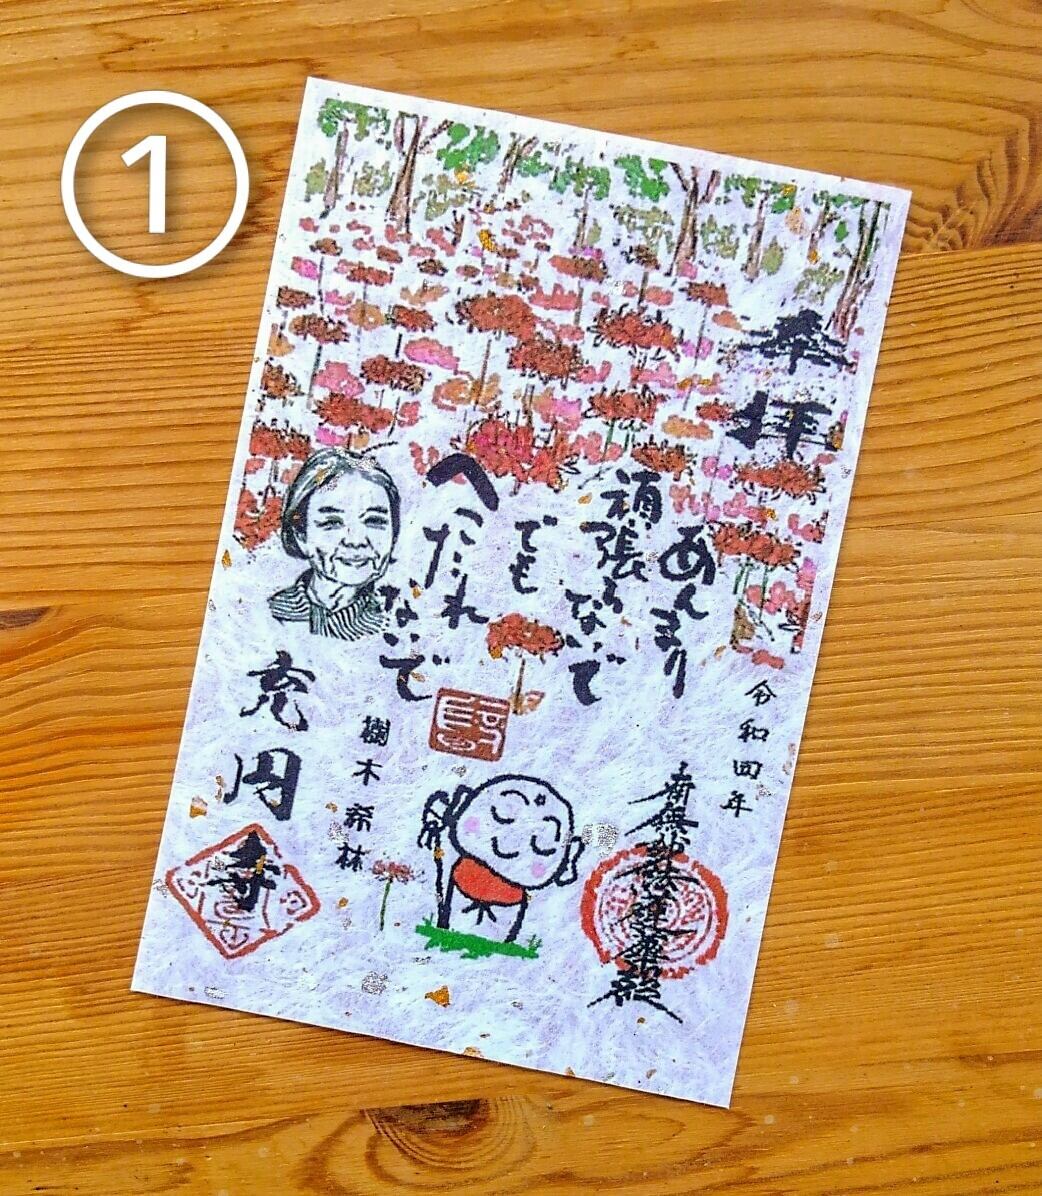 ①
奉拝
令和四年
南無妙法蓮華経
あんまり
頑張らないで
でも
へこたれ
ないで
樹木希林
充円寺